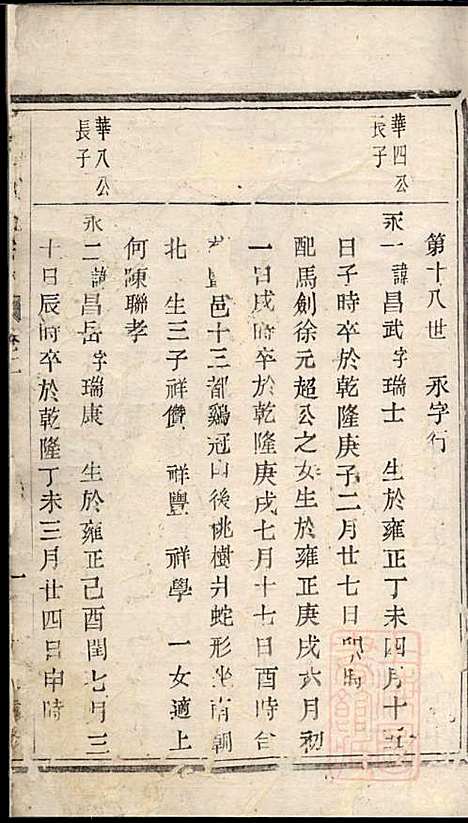 第十八世 永字行
華四公
長子
永一諱昌武字瑞士 生於雍正丁未四月十五
日子時卒於乾隆庚子二月廿七日
配馬劍徐元超公之女生於雍正庚戌六月初
一日戌時卒於乾隆庚戌七月十七日酉時合
邑十三都鷄冠山後桃樹爿蛇形坐南朝
北 生三子祥儹 祥豐 祥學 一女適上
何陳聯孝
華八公
長子
永二諱昌岳字瑞康 生於雍正己酉閏七月三
十日辰時卒於乾隆丁未三月廿四日申時